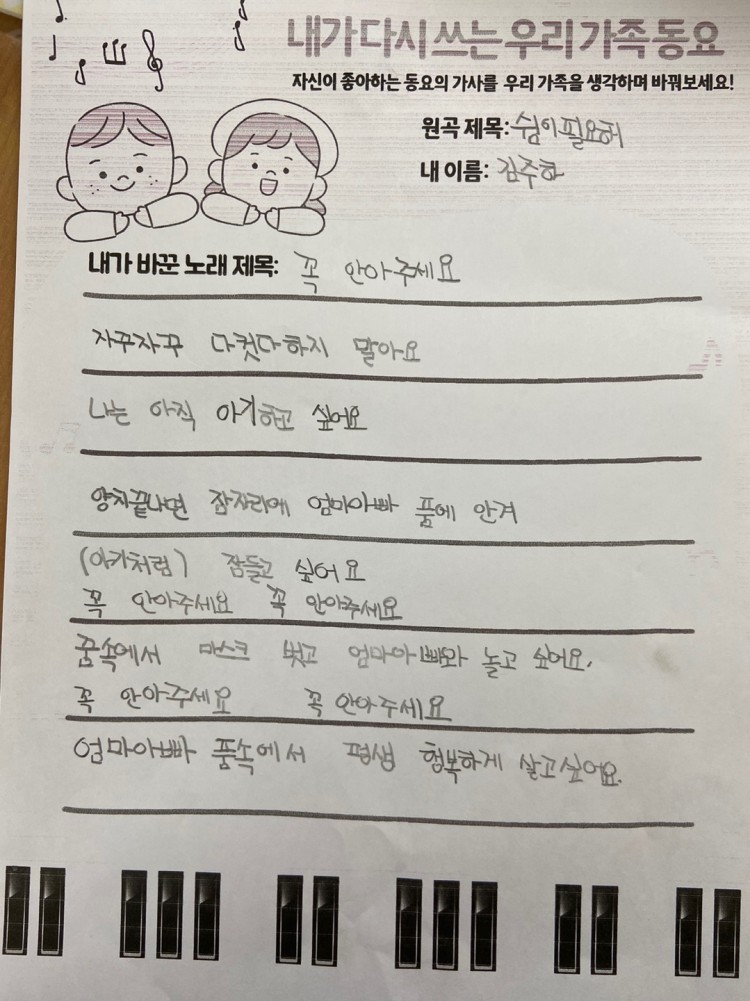 내가 다시 쓰는 우리 가족 동요
자신이 좋아하는 동요의 가사를 우리 가족을 생각하며 바꿔보세요!
원곡 제목: 쉼이 필요해
내 이름: 김주하
내가 바꾼 노래 제목: 꼭 안아주세요
자꾸자꾸 다컷다하지 말아요
나는 아직 아기하고 싶어요
양치끝나면 잠자리에 엄마아빠 품에 안겨
(아가처럼) 잠들고 싶어요
꼭 안아주세요 꼭 안아주세요
꿈속에서 마스크 벗고 엄마아빠와 놀고 싶어요.
꼭 안아주세요 꼭 안아주세요
엄마아빠 품속에서 평생 행복하게 살고싶어요.